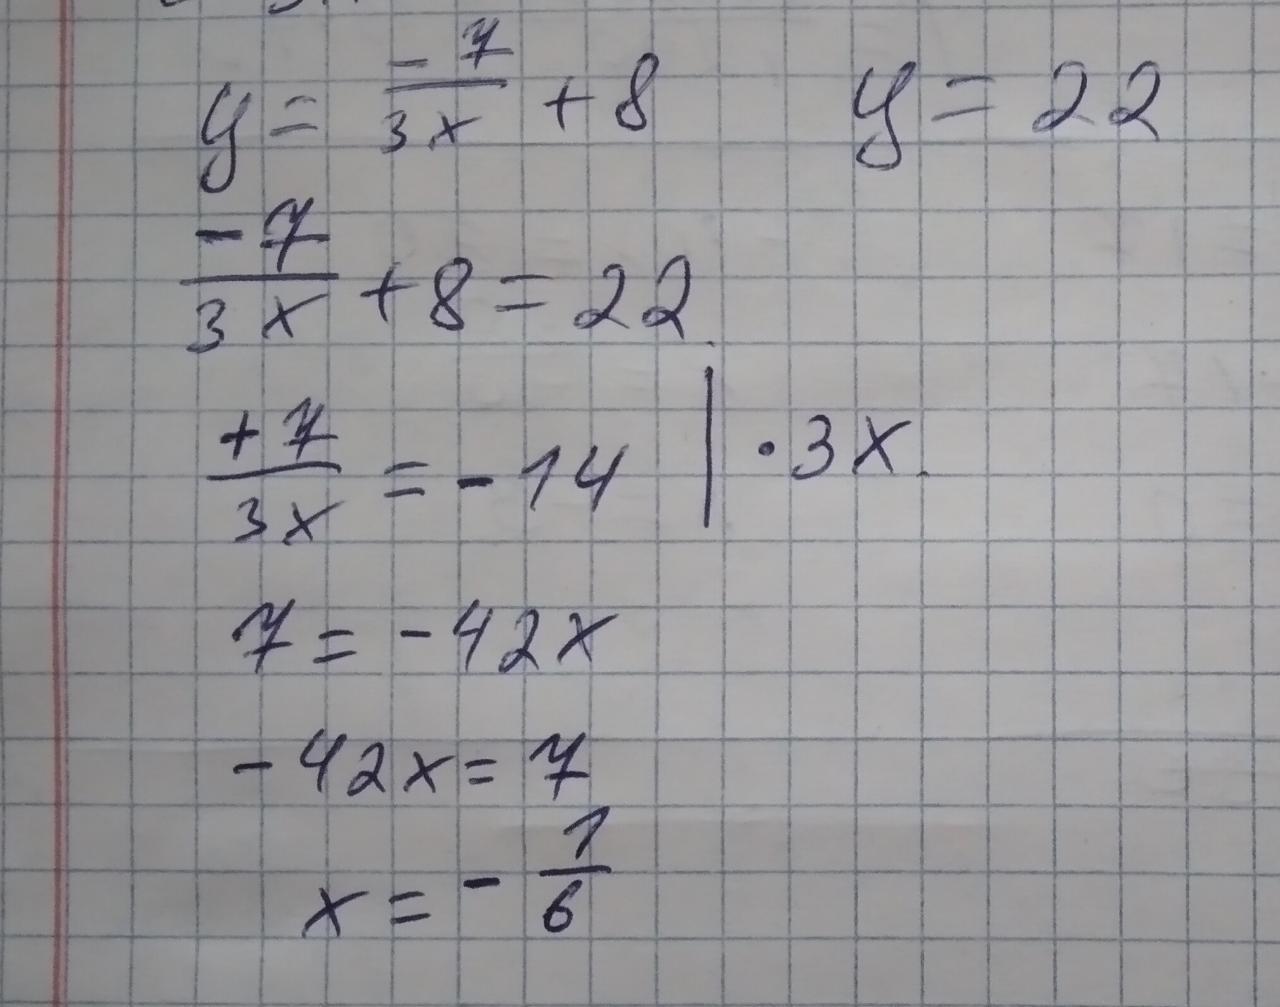 y = -7/3x + 8     y = 22
-7/3x + 8 = 22
+7/3x = -14 | · 3x
7 = -42x
-42x = 7
x = - 1/6